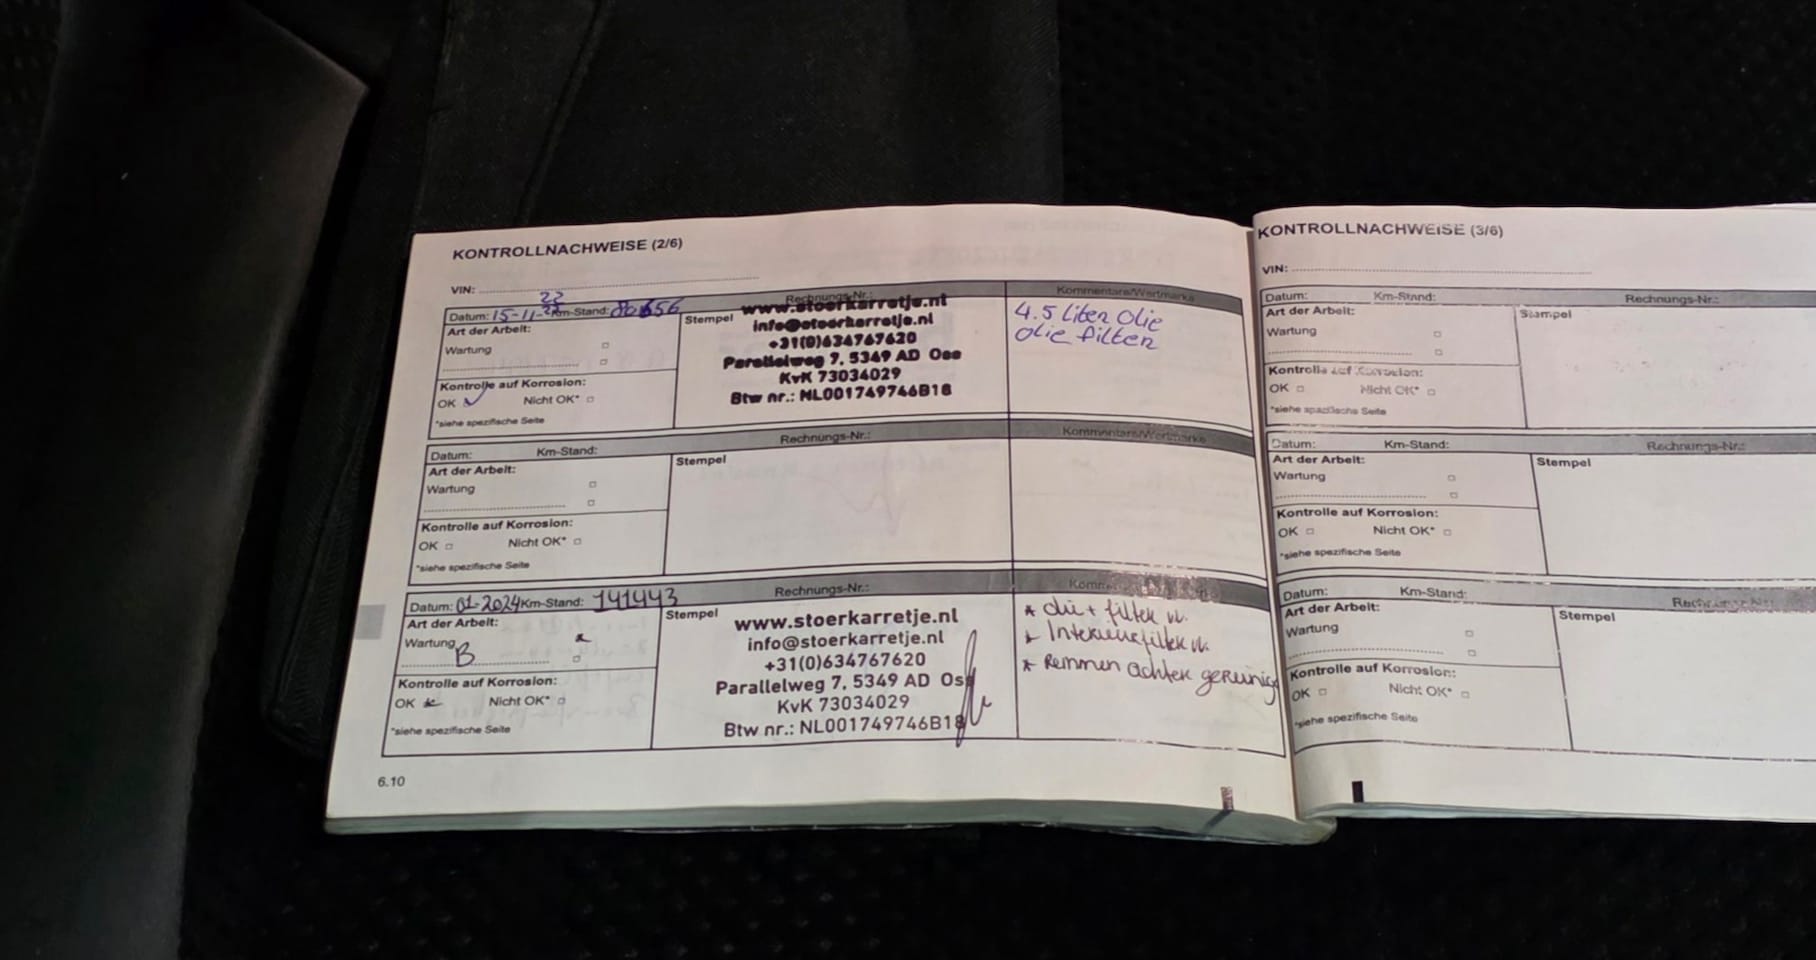 KONTROLLNACHWEISE (2/6)
VIN:
Datum: 15-11-22 Km-Stand: Rechnungs-Nr.: Kommentare/Wertmarke
Art der Arbeit:
Wartung
Kontrolle auf Korrosion:
OK Nicht OK*
*siehe spezifische Seite
Stempel
www.stoerkarretje.nl
info@stoerkarretje.nl
+31(0)634767620
Parallelweg 7, 5349 AD Oss
KvK 73034029
Btw nr.: NL001749746B18
4.5 liter olie
olie filter
Datum: Km-Stand: Rechnungs-Nr.: Kommentare/Wertmarke
Art der Arbeit:
Wartung
Kontrolle auf Korrosion:
OK Nicht OK*
*siehe spezifische Seite
Stempel
Datum: 01-2024 Km-Stand: 141443 Rechnungs-Nr.:
Art der Arbeit:
Wartung
B
Kontrolle auf Korrosion:
OK Nicht OK*
*siehe spezifische Seite
Stempel
www.stoerkarretje.nl
info@stoerkarretje.nl
+31(0)634767620
Parallelweg 7, 5349 AD Oss
KvK 73034029
Btw nr.: NL001749746B18
* olie + filter v.
* Interieurfilter v.
* Remmen achter gereinigd
6.10
KONTROLLNACHWEISE (3/6)
VIN:
Datum: Km-Stand: Rechnungs-Nr.:
Art der Arbeit:
Wartung
Kontrolle auf Korrosion:
OK Nicht OK*
*siehe spezifische Seite
Stempel
Datum: Km-Stand: Rechnungs-Nr.:
Art der Arbeit:
Wartung
Kontrolle auf Korrosion:
OK Nicht OK*
*siehe spezifische Seite
Stempel
Datum: Km-Stand: Rechnungs-Nr.:
Art der Arbeit:
Wartung
Kontrolle auf Korrosion:
OK Nicht OK*
*siehe spezifische Seite
Stempel